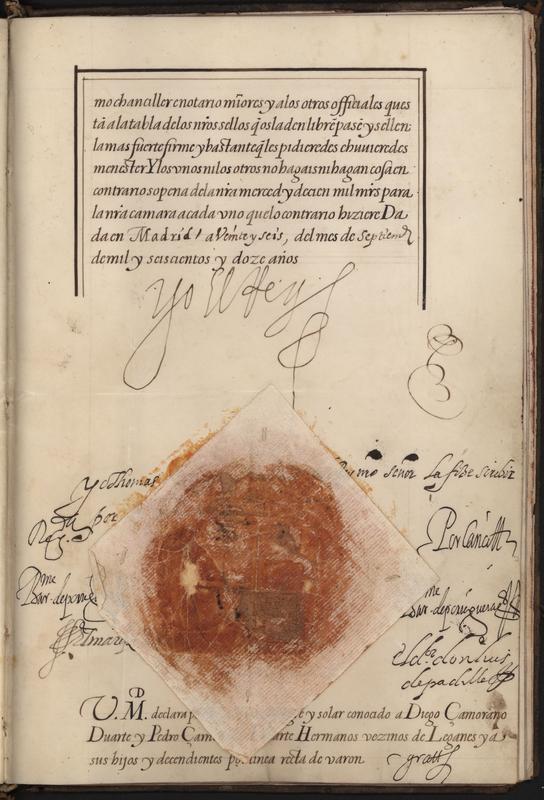 mo chanciller e notario mïores y a los otros officiales ques
tã a la tabla de los nr̃os sellos q̃ os la den libr̃e pase y sellen
la mas fuerte firme y bastante q̃ les pidieredes e huuieredes
menester Y los vnos ni los otros no hagais ni hagan cosa en
contrario so pena de la nr̃a merced y de cien mil mr̃s para
la nr̃a camara a cada vno que lo contrario hiziere Da
da en Madrid a Veinte y seis, del mes de Septiemb
de mil y seiscientos y doze años
Yo El Rey
Yo Thomas
mo señor la fize scribir
por
Por Cancll
don luis
de padilla
V. M. declara p y solar conocido a Diego Çamorano
Duarte y Pedro Çam arte Hermanos vezinos de Leganes y a
sus hijos y decendientes por linea recta de varon